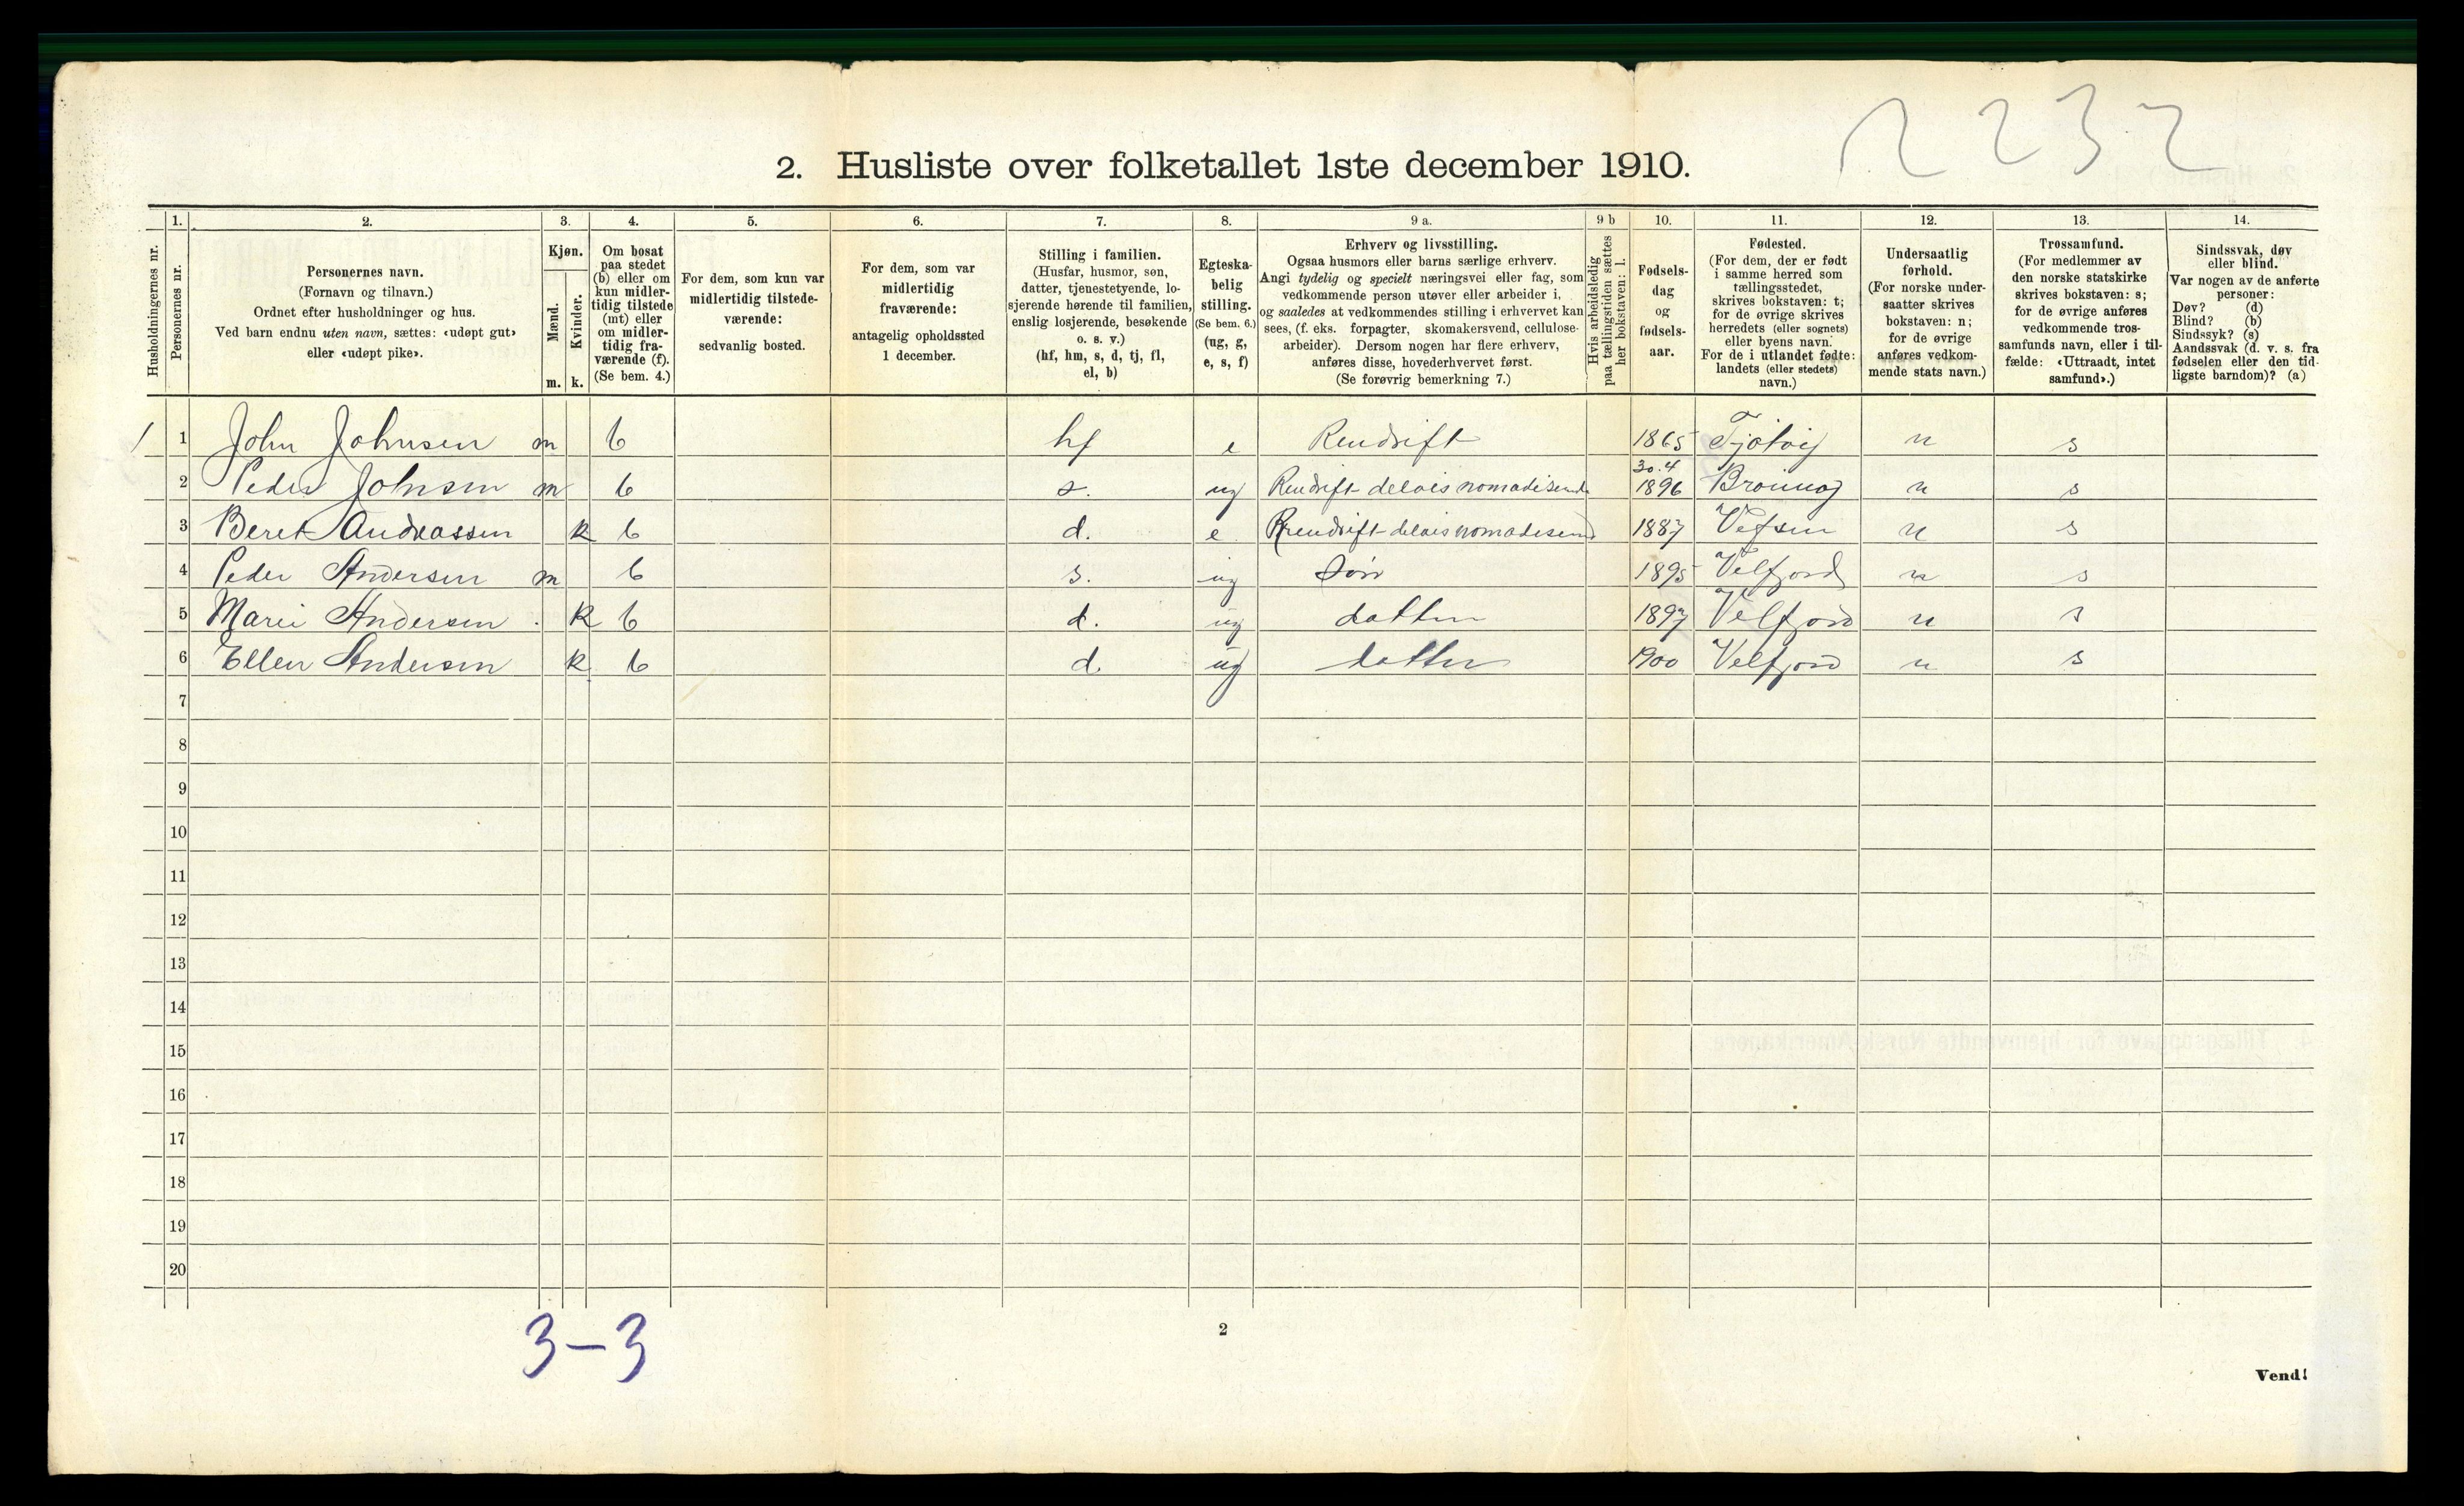 2232
2. Husliste over folketallet 1ste december 1910.
1. 2. 3. 4. 5. 6. 7. 8. 9 a. 9 b 10. 11. 12. 13. 14.
Husholdningernes nr.
Personernes nr.
Personernes navn.
(Fornavn og tilnavn.)
Ordnet efter husholdninger og hus.
Ved barn endnu uten navn, sættes: «udøpt gut»
eller «udøpt pike».
Kjøn.
Mænd.
Kvinder.
m. k.
Om bosat
paa stedet
(b) eller om
kun midler-
tidig tilstede
(mt) eller
om midler-
tidig fra-
værende (f).
(Se bem. 4.)
For dem, som kun var
midlertidig tilstede-
værende:
sedvanlig bosted.
For dem, som var
midlertidig
fraværende:
antagelig opholdssted
1 december.
Stilling i familien.
(Husfar, husmor, søn,
datter, tjenestetyende, lo-
sjerende hørende til familien,
enslig losjerende, besøkende
o. s. v.)
(hf, hm, s, d, tj, fl,
el, b)
Egteska-
belig
stilling.
(Se bem. 6.)
(ug, g,
e, s, f)
Erhverv og livsstilling.
Ogsaa husmors eller barns særlige erhverv.
Angi tydelig og specielt næringsvei eller fag, som
vedkommende person utøver eller arbeider i,
og saaledes at vedkommendes stilling i erhvervet kan
sees, (f. eks. forpagter, skomakersvend, cellulose-
arbeider). Dersom nogen har flere erhverv,
anføres disse, hovederhvervet først.
(Se forøvrig bemerkning 7.)
Hvis arbeidsledig
paa tællingstiden sættes
her bokstaven: l.
Fødsels-
dag
og
fødsels-
aar.
Fødested.
(For dem, der er født
i samme herred som
tællingsstedet,
skrives bokstaven: t;
for de øvrige skrives
herredets (eller sognets)
eller byens navn.
For de i utlandet fødte:
landets (eller stedets)
navn.)
Undersaatlig
forhold.
(For norske under-
saatter skrives
bokstaven: n;
for de øvrige
anføres vedkom-
mende stats navn.)
Trossamfund.
(For medlemmer av
den norske statskirke
skrives bokstaven: s;
for de øvrige anføres
vedkommende tros-
samfunds navn, eller i til-
fælde: «Uttraadt, intet
samfund».)
Sindssvak, døv
eller blind.
Var nogen av de anførte
personer:
Døv? (d)
Blind? (b)
Sindssyk? (s)
Aandssvak (d. v. s. fra
fødselen eller den tid-
ligste barndom)? (a)
1 1 John Johnsen m b hf e Rendrift 1865 Tjøtøy n s
2 Peder Johnsen m b s. ug Rendrift delvis nomadisende 30.4 1896 Brønnøy n s
3 Beret Andreassen k b d. e Rrendrift delvis nomadisend 1887 Vefsen n s
4 Peder Andersen m b s. ug Søn 1895 Velfjord n s
5 Marie Andersen k b d. ug datter 1897 Velfjord n s
6 Ellen Andersen k b d. ug datter 1900 Velfjord n s
7
8
9
10
11
12
13
14
15
16
17
18
19
20
3-3
2
Vend!